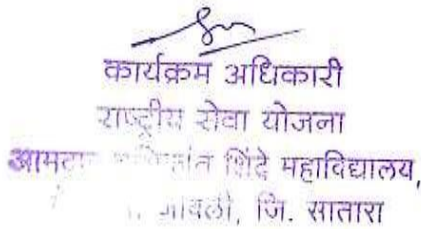 कार्यक्रम अधिकारी
राष्ट्रीय सेवा योजना
शिंदे महाविद्यालय,
जि. सातारा